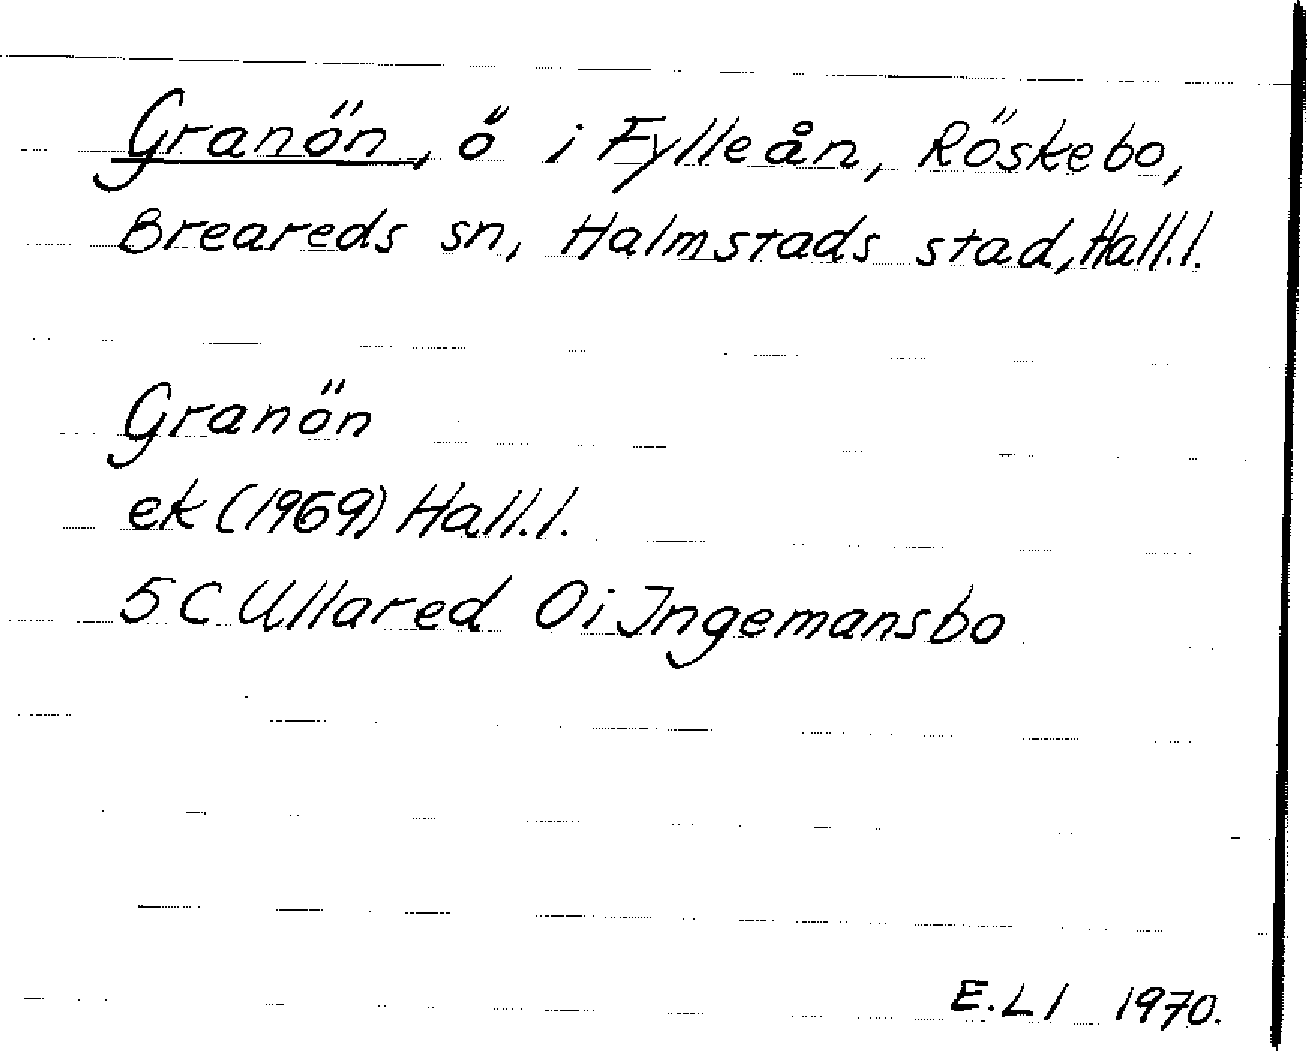 Granön, ö i Fylleån, Röskebo,
Breareds sn, Halmstads stad, Hall.l.
Granön
ek (1969) Hall.l.
5 C Ullared Oi Ingemansbo
E.Ll 1970.